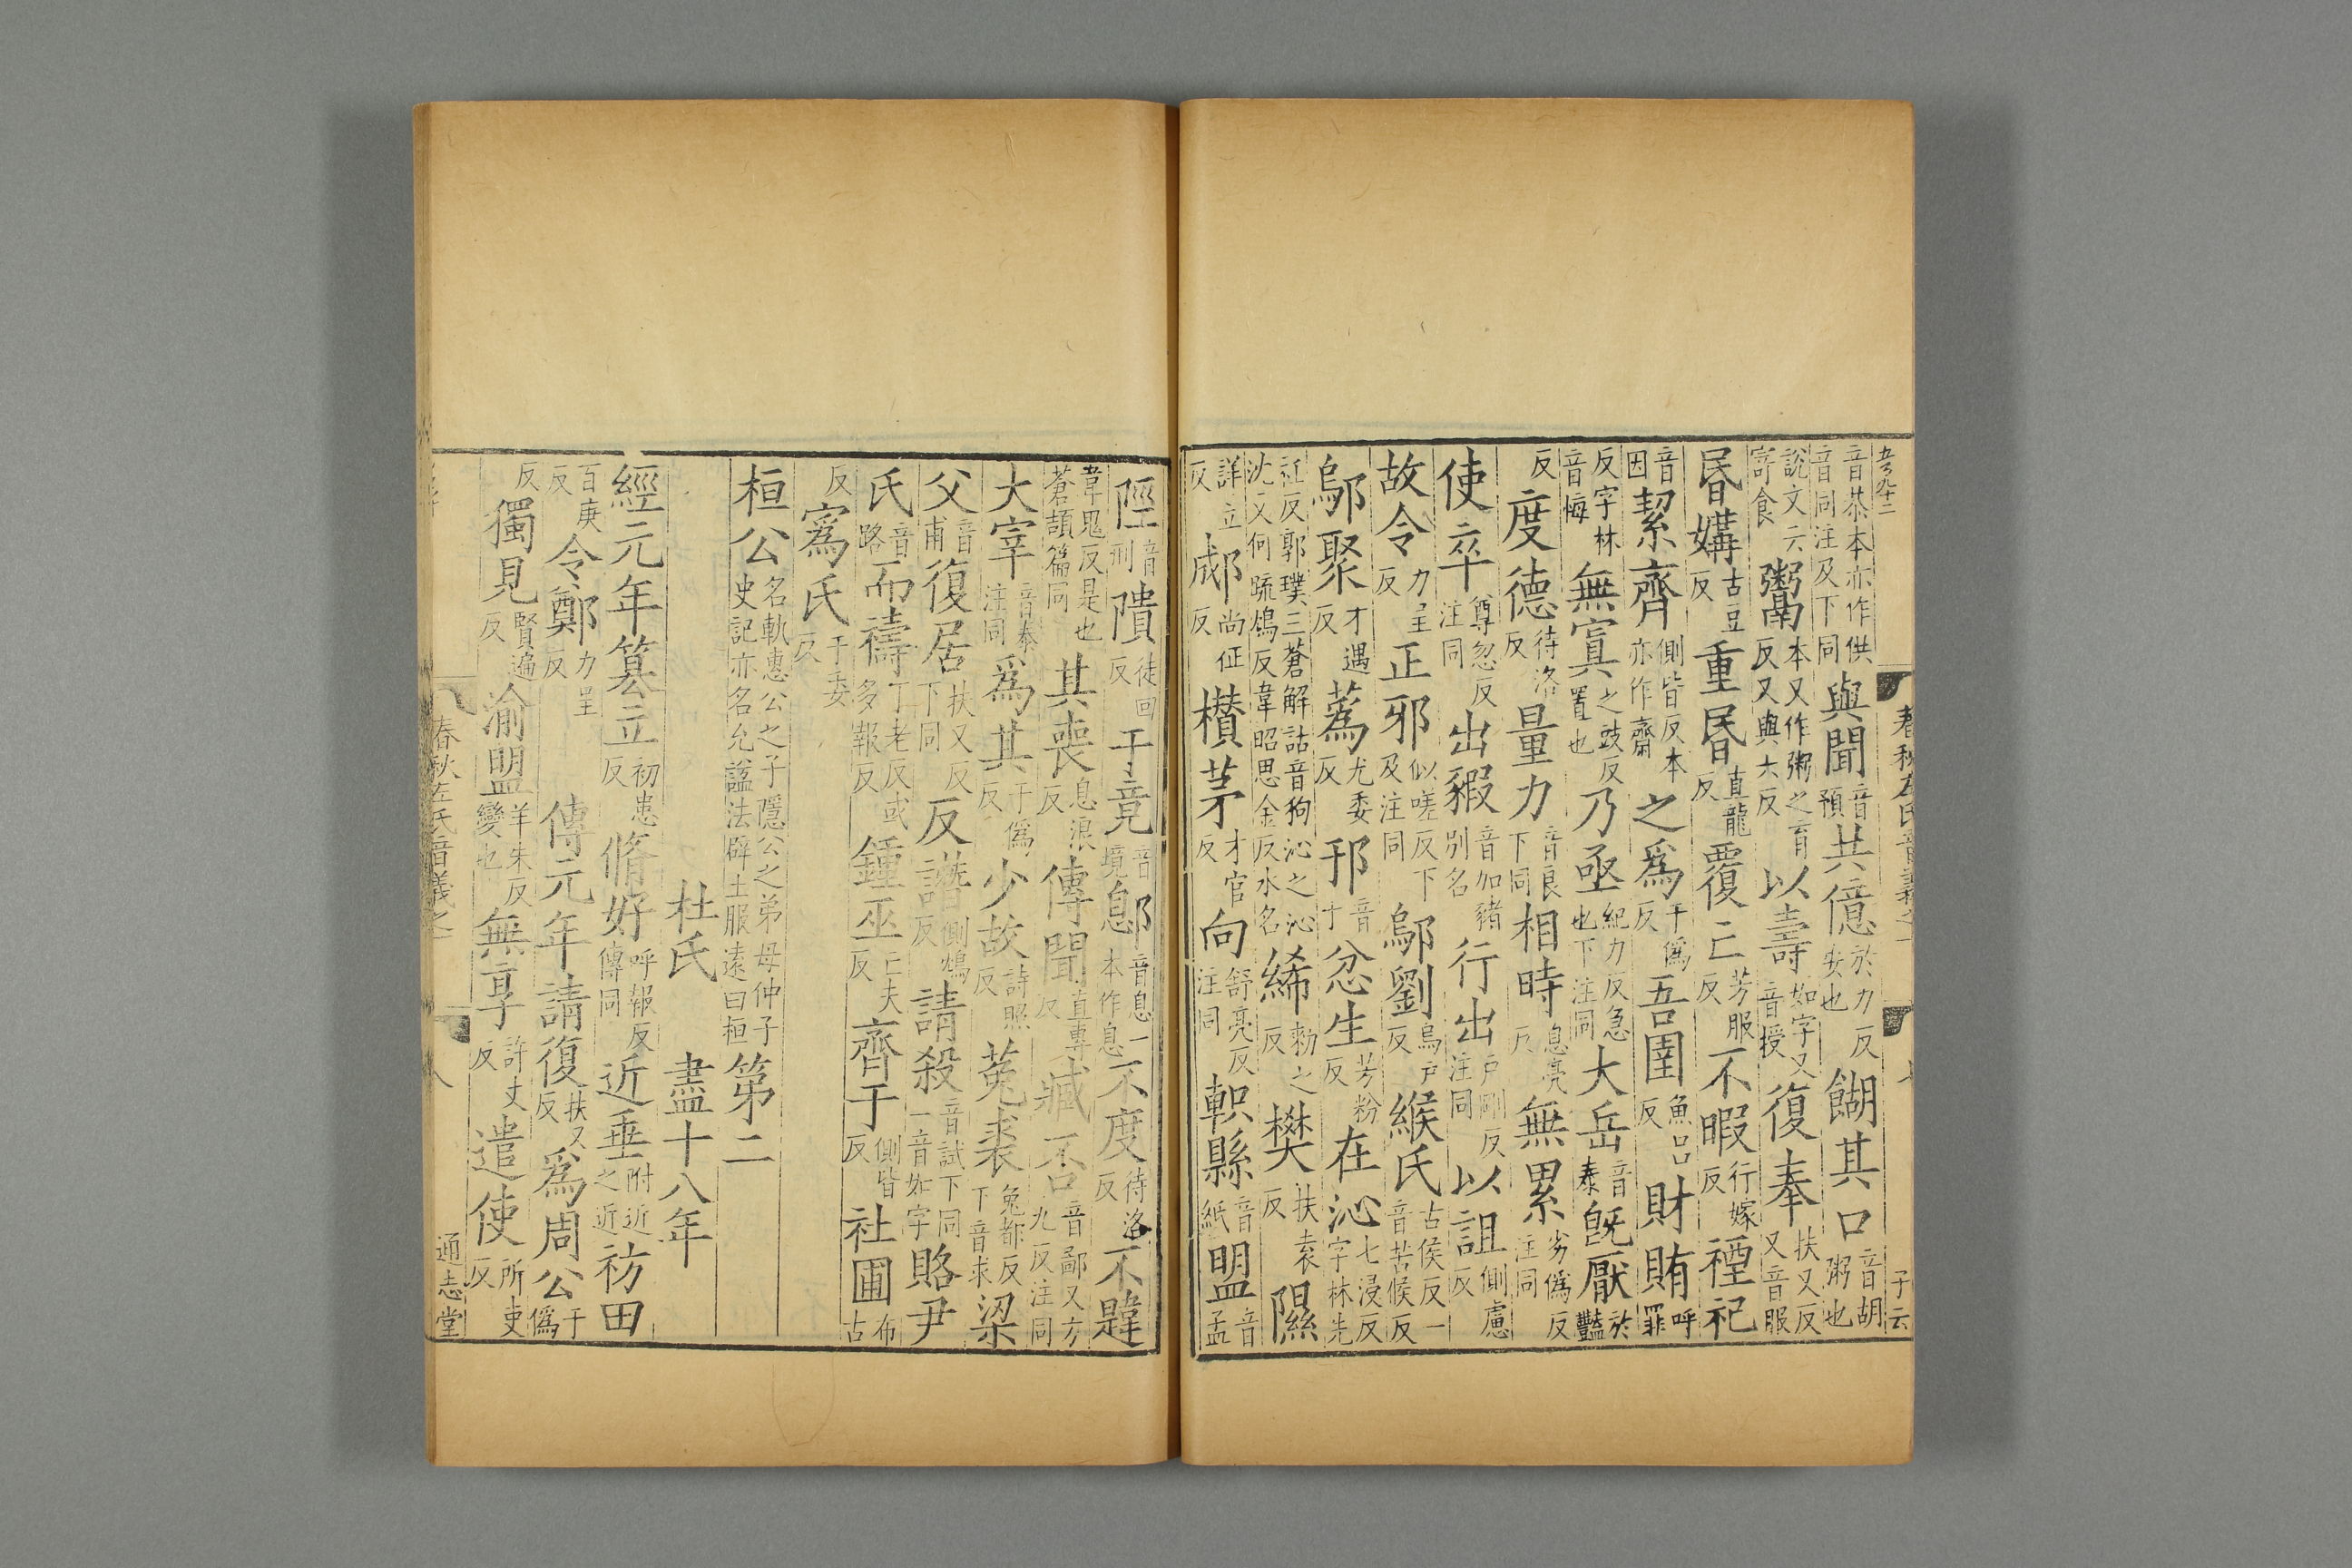 春秋左氏音義之一
子云
音恭本亦作供音同注及下同與聞音預共億於力反安也餬其口音胡粥也
說文云寄食鬻本又作粥之育反又與六反以壽如字又音授復奉扶又反又音服
昬媾古豆反重昬直龍反覆亡芳服反不暇行嫁反禋祀
音因絜齊側皆反本亦作齋之爲于僞反吾圉魚呂反財賄呼罪
反字林音悔無寘之豉反置也乃亟紀力反急也下注同大岳音泰旣厭於豔
反度德待洛反量力音良下同相時息亮反無累劣僞反注同
使卒尊忽反注同出豭音加豬別名行出戶剛反注同以詛側慮反
故令力呈反正邪似嗟反下及注同鄔劉烏戶反緱氏古侯反一音苦候反
鄔聚才遇反蒍尤委反邘音于忿生芳粉反在沁七浸反字林先
紅反郭璞三蒼解詁音狗沁之沁沈又何䟽鴆反韋昭思金反水名絺勑之反樊扶袁反隰
詳立反郕尚征反欑茅才官反向舒亮反注同軹縣音紙盟音孟
陘音刑隤徒回反于竟音境息郎音息一本作息不度待洛反不韙
韋鬼反是也蒼頡篇同其喪息浪反傳聞直專反臧否音鄙又方九反注同
大宰音泰注同爲其于僞反少故詩照反菟裘菟都反下音求梁
父音甫復居扶又反下同反譖側鴆反請殺音試下同一音如字賂尹
氏音路而禱丁老反或多報反鍾巫亡夫反齊于側皆反社圃布古
反寪氏于委反
桓公名軌惠公之子隱公之弟母仲子史記亦名允諡法辟土服遠曰桓第二
杜氏 盡十八年
經元年簒立初患反脩好呼報反傳同近垂附近之近祊田
百庚反令鄭力呈反傳元年請復扶又反爲周公于僞
反獨見賢遍反渝盟羊朱反變也無享許丈反遣使所吏反
春秋左氏音義之一
八
通志堂